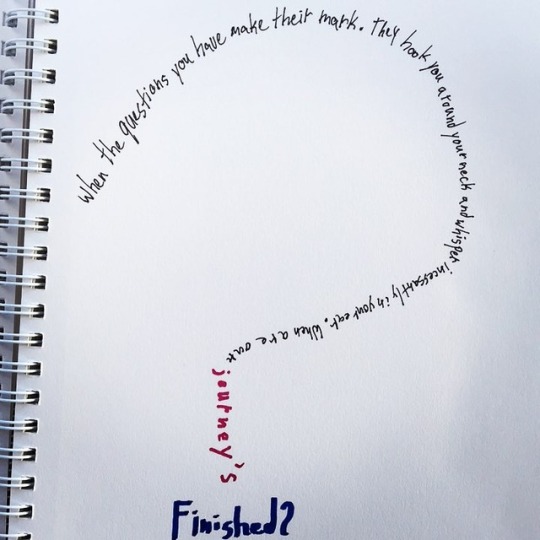 When the questions you have make their mark. They hook you around your neck and whisper incessantly in your ear. When are our
journey's
Finished?